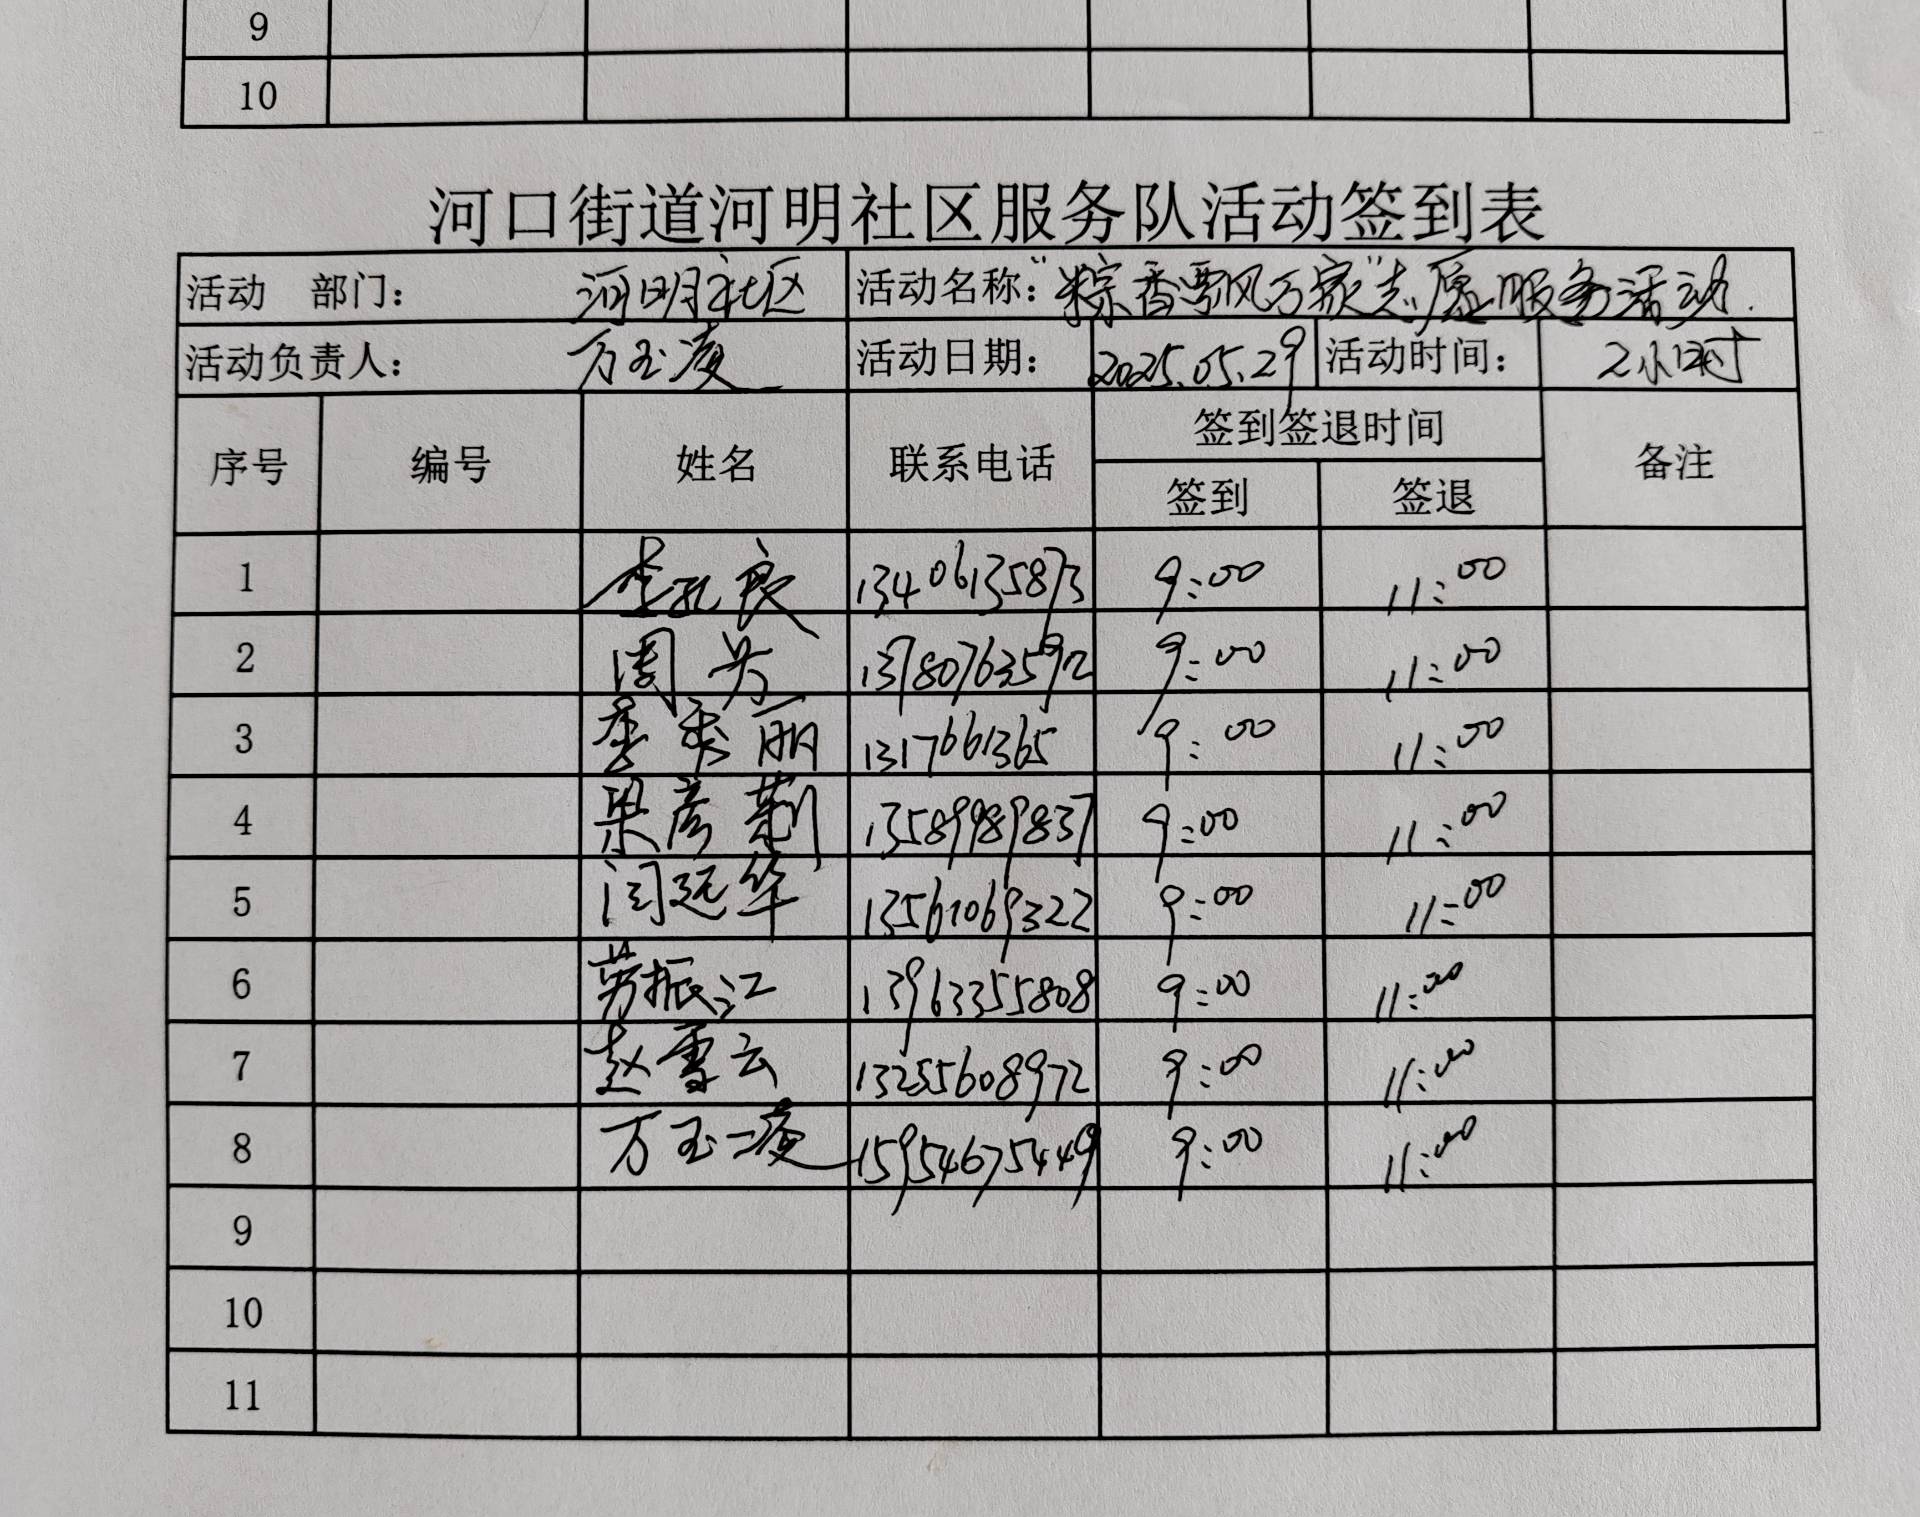 9
10
河口街道河明社区服务队活动签到表
活动 部门： 河明社区 活动名称："粽香飘万家"志愿服务活动.
活动负责人： 万玉凌 活动日期： 2025.05.29 活动时间： 2小时
序号 编号 姓名 联系电话 签到签退时间 备注
签到 签退
1 李孔良 13406135873 9:00 11:00
2 周芳 13780763592 9:00 11:00
3 李秀丽 1317661365 9:00 11:00
4 梁彦荆 13589989837 9:00 11:00
5 闫延华 13561069322 9:00 11:00
6 劳振江 13963355808 9:00 11:00
7 赵雪云 13255608972 9:00 11:00
8 万玉凌 15954675449 9:00 11:00
9
10
11